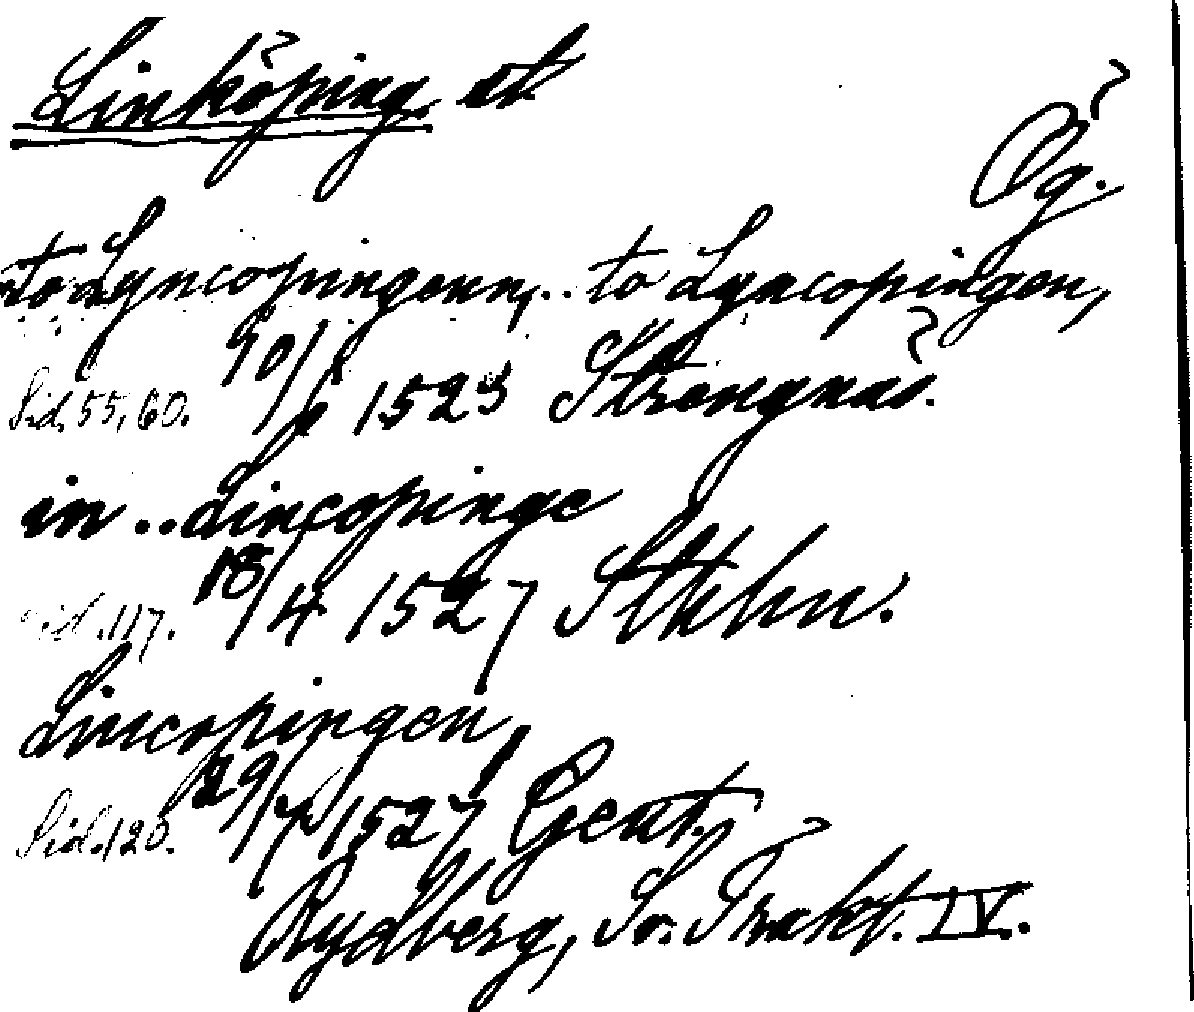 Linköping st.
Ög.
to Lyncopingenn,.. to Lyncopingen,
Sid. 55, 60. 10/6 1523 Strängnäs.
in .. Lincopinge
sid. 117. 18/4 1527 Sthlm.
Lincopingen,
Sid. 120. 29/7 1527 Gent.
Rydberg, Sv. Trakt. IV.